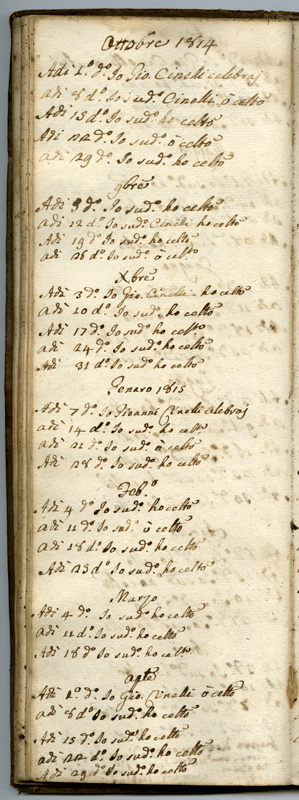 Ottobre 1814
Adi 1.° d.° Io Gio. Cinelli celebraj
adi 8 d.° Io sud.° Cinelli ò celto
Adi 15 d.° Io sud.° ho celto
Adi 22 d.° Io sud.° ò celto
adi 29 d.° Io sud.° ho celto
9bre
Adi 5 d.° Io sud.° ho celto
adi 12 d.° Io sud.° Cinelli ho celto
Adi 19 d.° Io sud.° ho celto
adi 26 d.° Io sud.° ò celto
Xbre
Adi 3 d.° Io Gio. Cinelli ho celto
adi 10 d.° Io sud.° ho celto
Adi 17 d.° Io sud.° ho celto
adi 24 d.° Io sud.° ho celto
Adi 31 d.° Io sud.° ho celto
Genaro 1815
Adi 7 d.° Io Gioanni Cinelli celebraj
adi 14 d.° Io sud.° ho celto
adi 21 d.° Io sud.° ò celto
Adi 28 d.° Io sud.° ho celto
Feb.°
Adi 4 d.° Io sud.° ho celto
adi 11 d.° Io sud.° ò celto
adi 18 d.° Io sud.° ho celto
Adi 25 d.° Io sud.° ho celto
Marzo
Adi 4 d.° Io sud.° ho celto
adi 11 d.° Io sud.° ho celto
Adi 18 d.° Io sud.° ho celto
aple
Adi 1.° d.° Io Gio. Cinelli ò celto
adi 8 d.° Io sud.° ho celto
Adi 15 d.° Io sud.° ho celto
adi 22 d.° Io sud.° ho celto
Adi 29 d.° Io sud.° ho celto